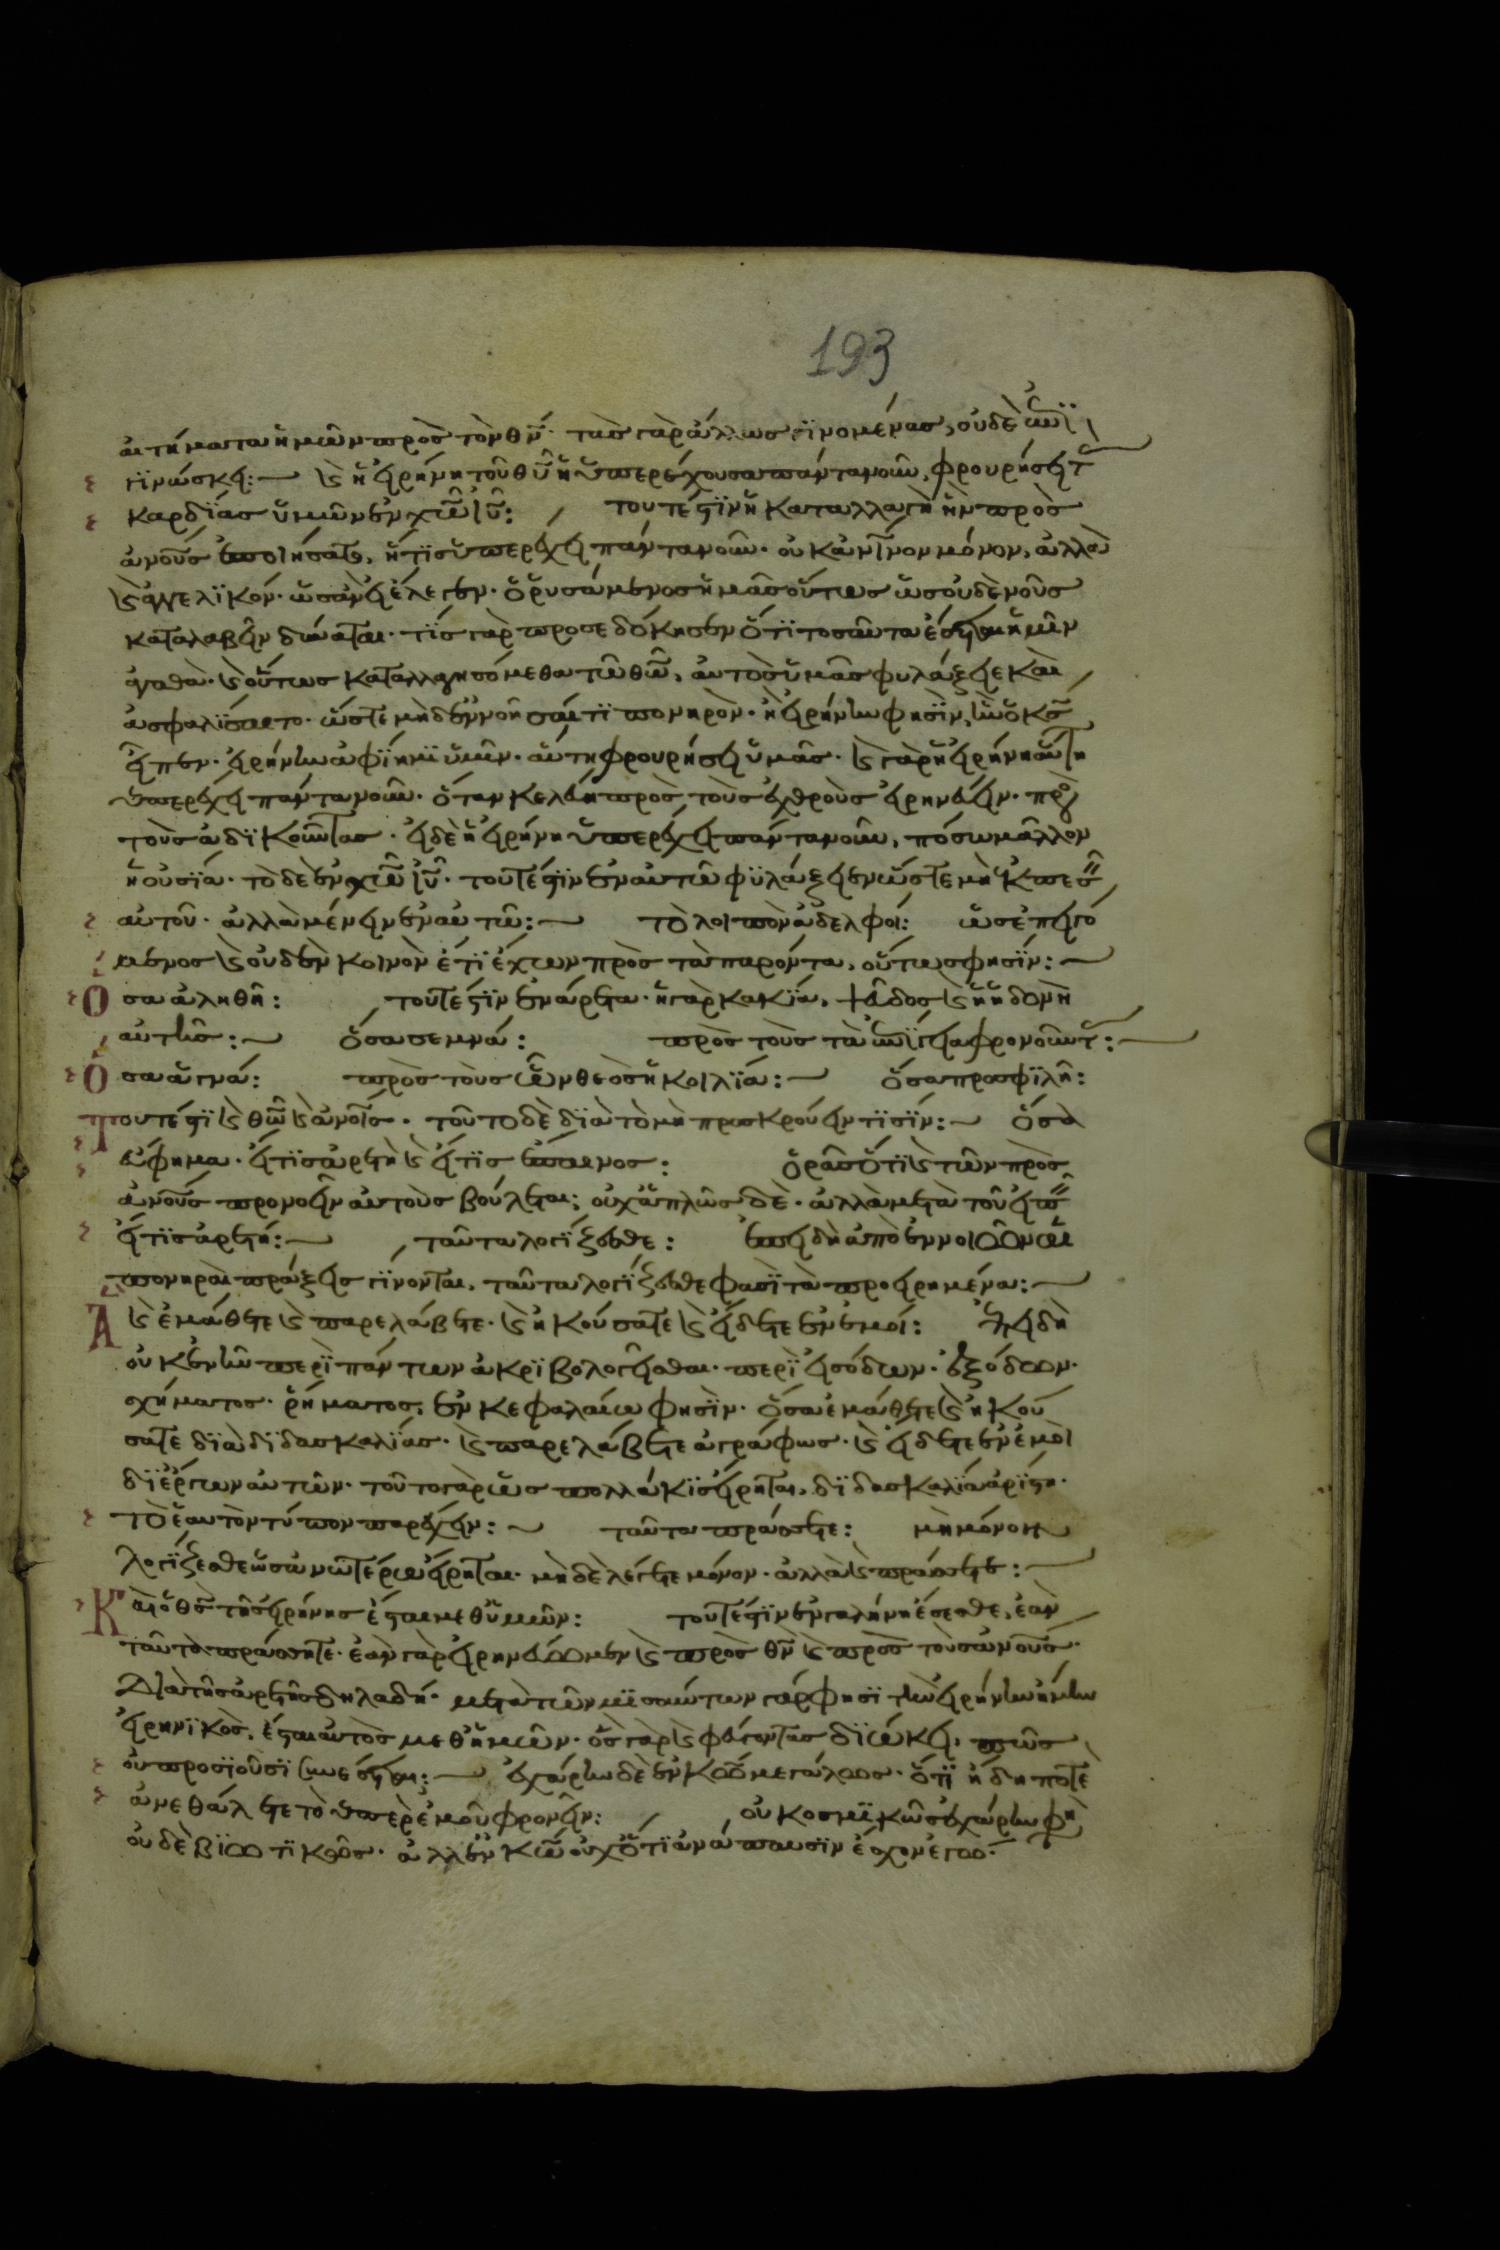 193
αιτήματα ἡμῶν πρὸς τὸν θν̄· τὰς γὰρ ἄλλως γινομένας, οὐδὲ ἐπι
γινώσκει:— καὶ ἡ εἰρήνη τοῦ θῦ ἡ ὑπερέχουσα πάντα νοῦν, φρουρήσει τ
καρδίας ὑμῶν ἐν χῶ ιῦ: τουτέστιν ἡ καταλλαγὴ ἣν πρὸς
ἀνους ἐποιήσατο, ἥτις ὑπερέχει πάντα νοῦν· οὐκ ἀνινον μόνον, ἀλλὰ
καὶ ἀγγελικόν· ὡσὰν εἰ ἔλεγεν· ὁ ῥυσάμενος ἡμᾶς οὕτως ὡς οὐδὲ νοῦς
καταλαβεῖν δύναται· τίς γὰρ προσεδόκησεν ὅτι τοσαῦτα ἔσται ἡμῖν
ἀγαθὰ· καὶ οὕτως καταλλαγησόμεθα τῶ θῶ, αὐτὸς ὑμᾶς φυλάξειε καὶ
ἀσφαλίσαιτο· ὥστε μηδὲ ἐννοῆσαί τι πονηρὸν· ἢ εἰρήνην φησὶν, ἣν ὁ κς
εἶπεν· εἰρήνην ἀφίημι ὑμῖν· αὕτη φρουρήσει ὑμᾶς· καὶ γὰρ ἡ εἰρήνη αὕτη
ὑπερέχει πάντα νοῦν· ὅταν κελεύη πρὸς τοὺς ἐχθροὺς εἰρηνεύειν· πρὸς
τοὺς ἀδικοῦντας· εἰ δὲ ἡ εἰρήνη ὑπερέχει πάντα νοῦν, πόσω μᾶλλον
ἡ οὐσία· τὸ δὲ ἐν χῶ ιῦ· τουτέστιν ἐν αὐτῶ φυλάξειεν ὥστε μὴ ἐκπεσ
αὐτοῦ· ἀλλὰ μένειν ἐν αὐτῶ:— τὸ λοιπὸν ἀδελφοί: ὡς ἐπειγό
μενος καὶ οὐδὲν κοινὸν ἔτι ἔχων πρὸς τὰ παρόντα, οὕτως φησίν:—
Ὅσα ἀληθῆ: τουτέστιν ἐνάρετα· ἡ γὰρ κακία, ψεῦδος καὶ ἡ ἡδονὴ
αὐτῆς:— ὅσα σεμνά: πρὸς τοὺς τὰ ἐπίγεια φρονοῦντ:—
Ὅσα ἁγνά: πρὸς τοὺς ὧν θεὸς ἡ κοιλία:— ὅσα προσφιλῆ:
Τουτέστι καὶ θῶ καὶ ἀνοις· τοῦτο δὲ διὰ τὸ μὴ προσκρούειν τισίν:— ὅσα
εὔφημα· εἴ τις ἀρετὴ καὶ εἴ τις ἔπαινος: ὁρᾶς ὅτι καὶ τῶν πρὸς
ἀνους προνοεῖν αὐτοὺς βούλεται; οὐχ ἁπλῶς δὲ· ἀλλὰ μετὰ τοῦ εἰπ
εἴ τις ἀρετή:— ταῦτα λογίζεσθε: ἐπειδὴ ἀπὸ ἐννοιῶν αἱ
πονηραὶ πράξεις γίνονται, ταῦτα λογίζεσθε φασὶ τὰ προειρημένα:—
Ἃ καὶ ἐμάθετε καὶ παρελάβετε· καὶ ἠκούσατε καὶ εἴδετε ἐν ἐμοί: ἐπειδὴ
οὐκ ἐνῆν περὶ πάντων ἀκριβολογεῖσθαι· περὶ εἰσόδων· ἐξόδων·
σχήματος· ῥήματος, ἐν κεφαλαίω φησὶν· ὅσα ἐμάθετε καὶ ἠκού
σατε διὰ διδασκαλίας· καὶ παρελάβετε ἀγράφως· καὶ εἴδετε ἐν ἐμοὶ
δι' ἔργων αὐτῶν· τοῦτο γὰρ ὡς πολλάκις εἴρηται, διδασκαλία ἀρίστη·
τὸ ἑαυτὸν τύπον παρέχειν:— ταῦτα πράσσετε: μὴ μόνον
λογίζεσθε ὡς ἀνωτέρω εἴρηται· μηδὲ λέγετε μόνον· ἀλλὰ καὶ πράσσετε:—
Καὶ ὁ θς τῆς εἰρήνης ἔσται μεθ' ὑμῶν: τουτέστιν ἐν γαλήνη ἔσεσθε, ἐὰν
ταῦτα πράσσητε· ἐὰν γὰρ εἰρηνεύωμεν καὶ πρὸς θν καὶ πρὸς τοὺς ἀνους·
Διὰ τῆς ἀρετῆς δηλαδή· μετὰ τῶν μισούντων γάρ φησι τὴν εἰρήνην ἤμην
εἰρηνικὸς, ἔσται αὐτὸς μεθ' ἡμῶν· ὃς γὰρ καὶ φεύγοντας διώκει, πῶς
οὐ προσιοῦσι συνέσται:— ἐχάρην δὲ ἐν κω μεγάλως· ὅτι ἤδη ποτὲ
ἀνεθάλετε τὸ ὑπὲρ ἐμοῦ φρονεῖν: οὐ κοσμικῶς ἐχάρην φη
οὐδὲ βιωτικῶς· ἀλλ' ἐν κῶ οὐχ ὅτι ἀνάπαυσιν ἔσχον ἐγω·